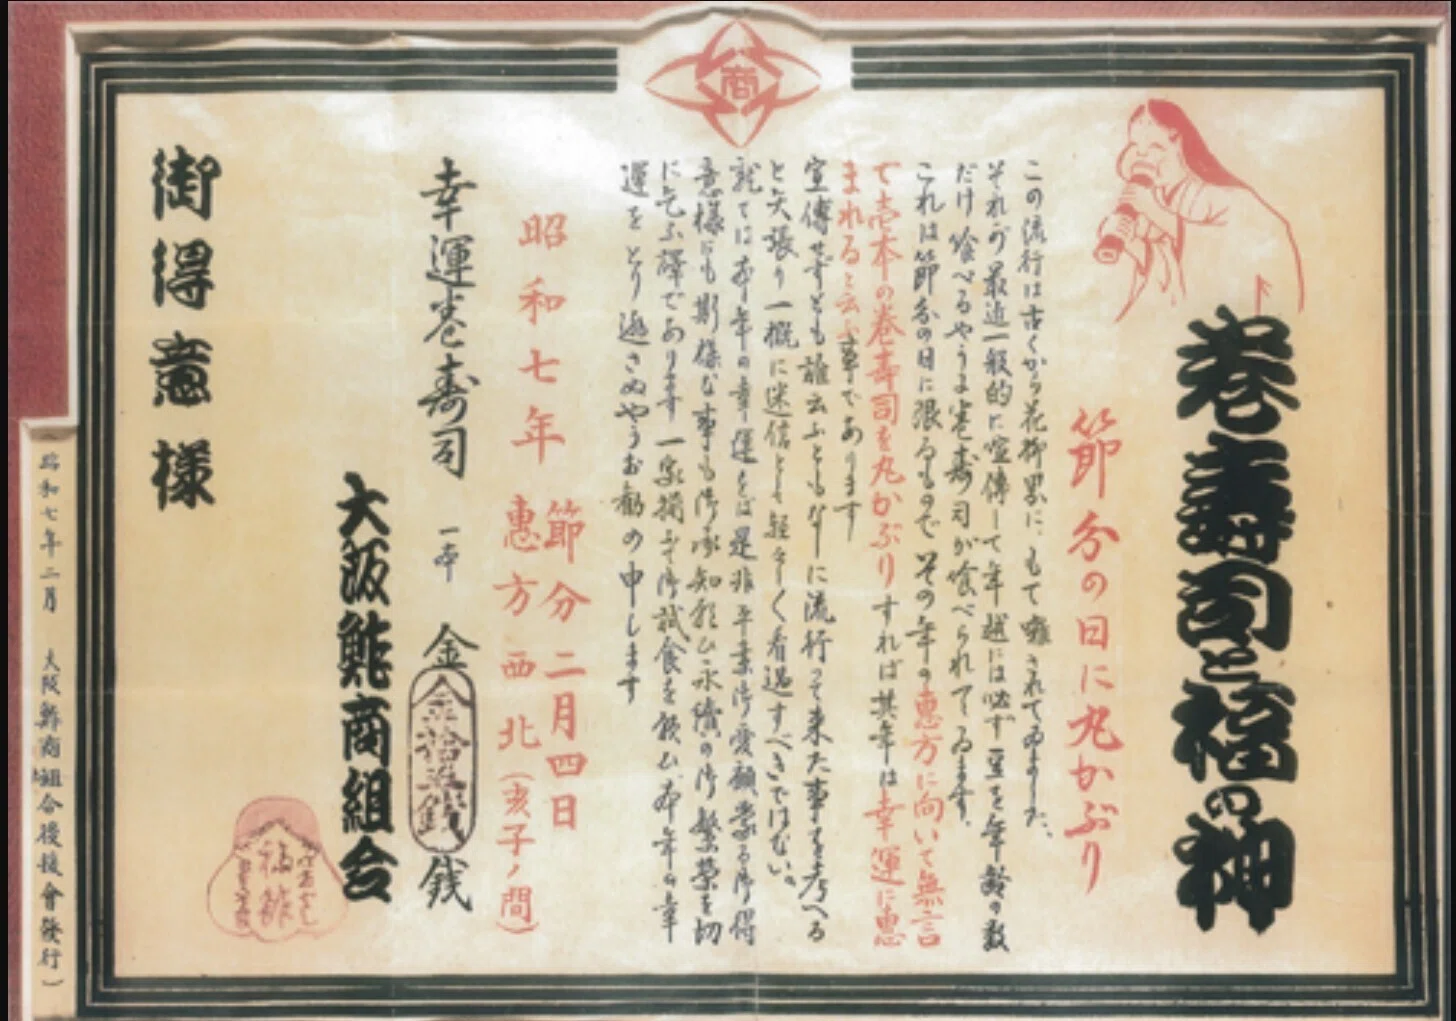 商
巻壽司と福の神
節分の日に丸かぶり
この流行は古くから花柳界に、もて囃されてゐました、
それが最近一般的に宣傳して年越には必ず豆を年齢の数
だけ喰べるやうに巻壽司が喰べられてゐます、
これは節分の日に限るもので その年の恵方に向いて無言
で壱本の巻壽司を丸かぶりすれば其年は幸運に恵
まれると云ふ事であります
宣傳せずとも誰云ふともなしに流行って来た事を考へる
と矢張り一概に迷信とも軽々しく看過すべきではない。
就ては本年の幸運をば是非平素御愛顧蒙る御得
意様にも斯様な事も御承知願ひ永續の御繁榮を切
に乞ふ譯であります 一家揃ふて御試食を願ひ本年の幸
運をとり逃さぬやうお勧め申します
昭和七年 節分二月四日
恵方西北(亥子ノ間)
幸運巻寿司 一本 金 金拾五銭 銭
大阪鮓商組合
福鮓
御得意様
昭和七年二月 大阪鮓商組合後援會發行)